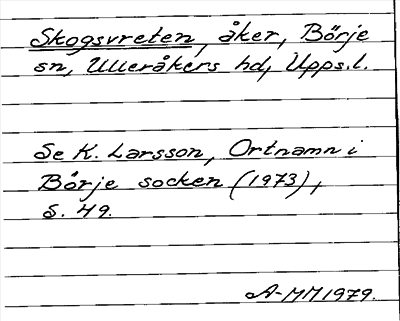 Skogsvreten, åker, Börje
sn, Ulleråkers hd, Upps.l.
Se K. Larsson, Ortnamn i
Börje socken (1973),
s. 49.
A-MM 1979.